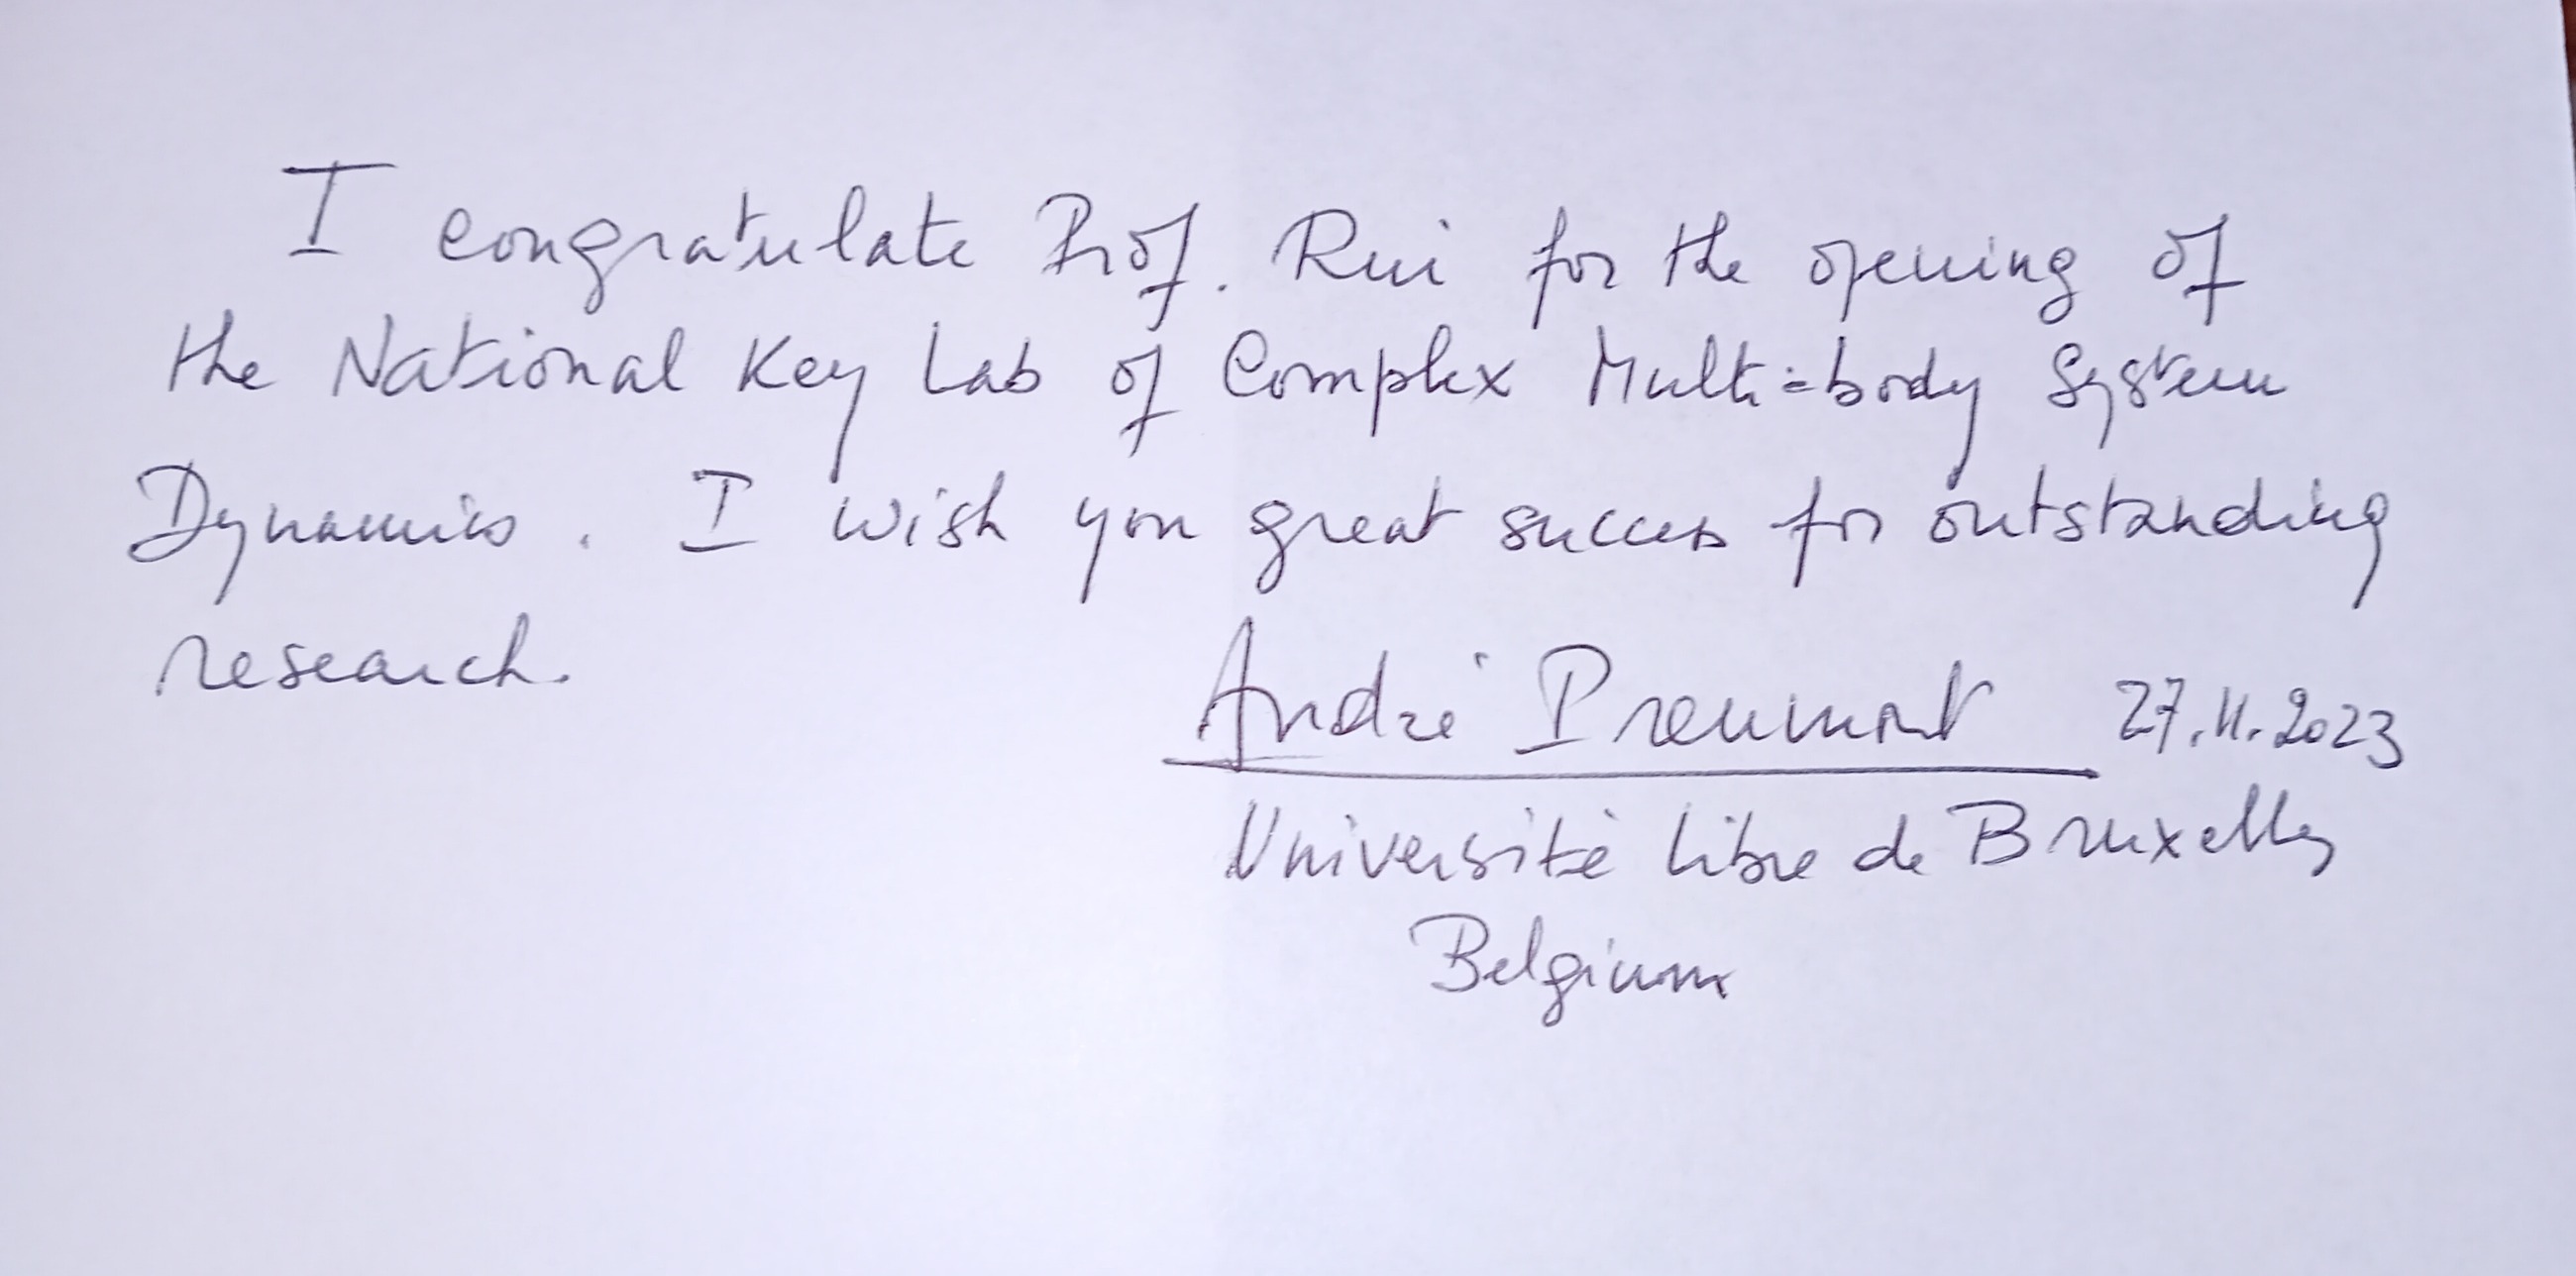 I congratulate Prof. Rui for the opening of
the National Key Lab of Complex Multi-body System
Dynamics. I wish you great success for outstanding
research.
André Preumont 27.11.2023
Université Libre de Bruxelles
Belgium